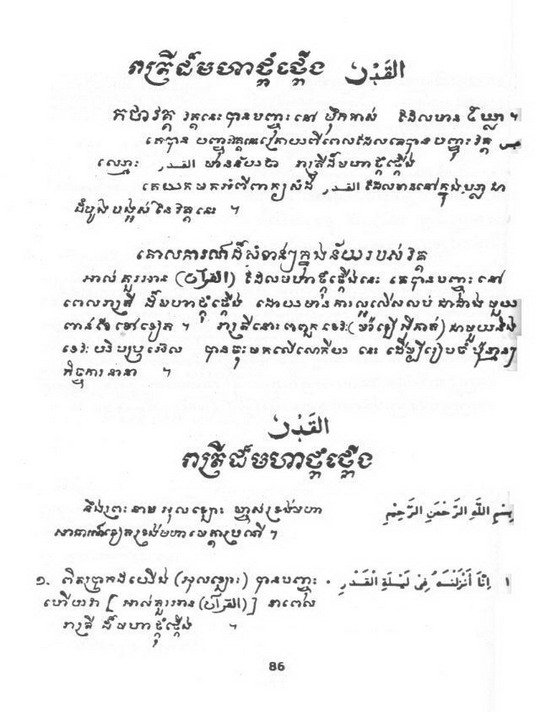 រាត្រីដ៏មហាថ្កុំថ្កើង القَدْر
កថាវត្ថុ វគ្គនេះបានបញ្ចុះនៅ ម៉ិកកាស់ ដែលមាន ៥ ឃ្លា ។
គេបាន បញ្ចុះវគ្គនេះក្រោយពីពេលដែលគេបានបញ្ចុះ វគ្គ عبس
ឈ្មោះ القدر មានន័យថា រាត្រីដ៏មហាថ្កុំថ្កើង
គេយកមកអំពីពាក្យសំដី القدر ដែលមាននៅក្នុងឃ្លា ជា
ដំបូងបង្អស់ នៃវគ្គនេះ ។
គោលការណ៍ដ៏សំខាន់ៗក្នុងន័យរបស់វគ្គ
អាល់គួរអាន (القرآن) ដែលមហាថ្កុំថ្កើងនេះ គេបានបញ្ចុះ នៅ
ពេលរាត្រី ដ៏មហាថ្កុំថ្កើង ដោយមានការល្អលើសលប់ ជាជាង មួយ
ពាន់ខែ ទៅទៀត ។ រាត្រីនោះ ពពួក ទេវៈ ជាមួយនឹង
ទេវៈ បានចុះមកលើលោកីយ នេះ ដើម្បីរៀបចំ
កិច្ចការនានា ។
القَدْر
រាត្រីដ៏មហាថ្កុំថ្កើង
នឹងព្រះនាម អុលឡោះ ម្ចាស់ទ្រង់មហា بِسْمِ اللَّهِ الرَّحْمَنِ الرَّحِيْمِ
ទ្រង់មហាមេត្តាប្រណី ។
១. ពិតប្រាកដយើង (អុលឡោះ) បានបញ្ចុះ ١ اِنَّا أَنْزَلْنَهُ فِىْ لَيْلَةِ الْقَدْرِ
ហើយវា [ អាល់គួរអាន (القرآن) ] នាពេល
រាត្រី ដ៏មហាថ្កុំថ្កើង ។
86